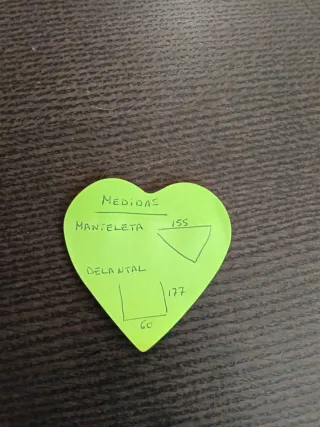 MEDIDAS
MANTELETA 155
DELANTAL
177
60